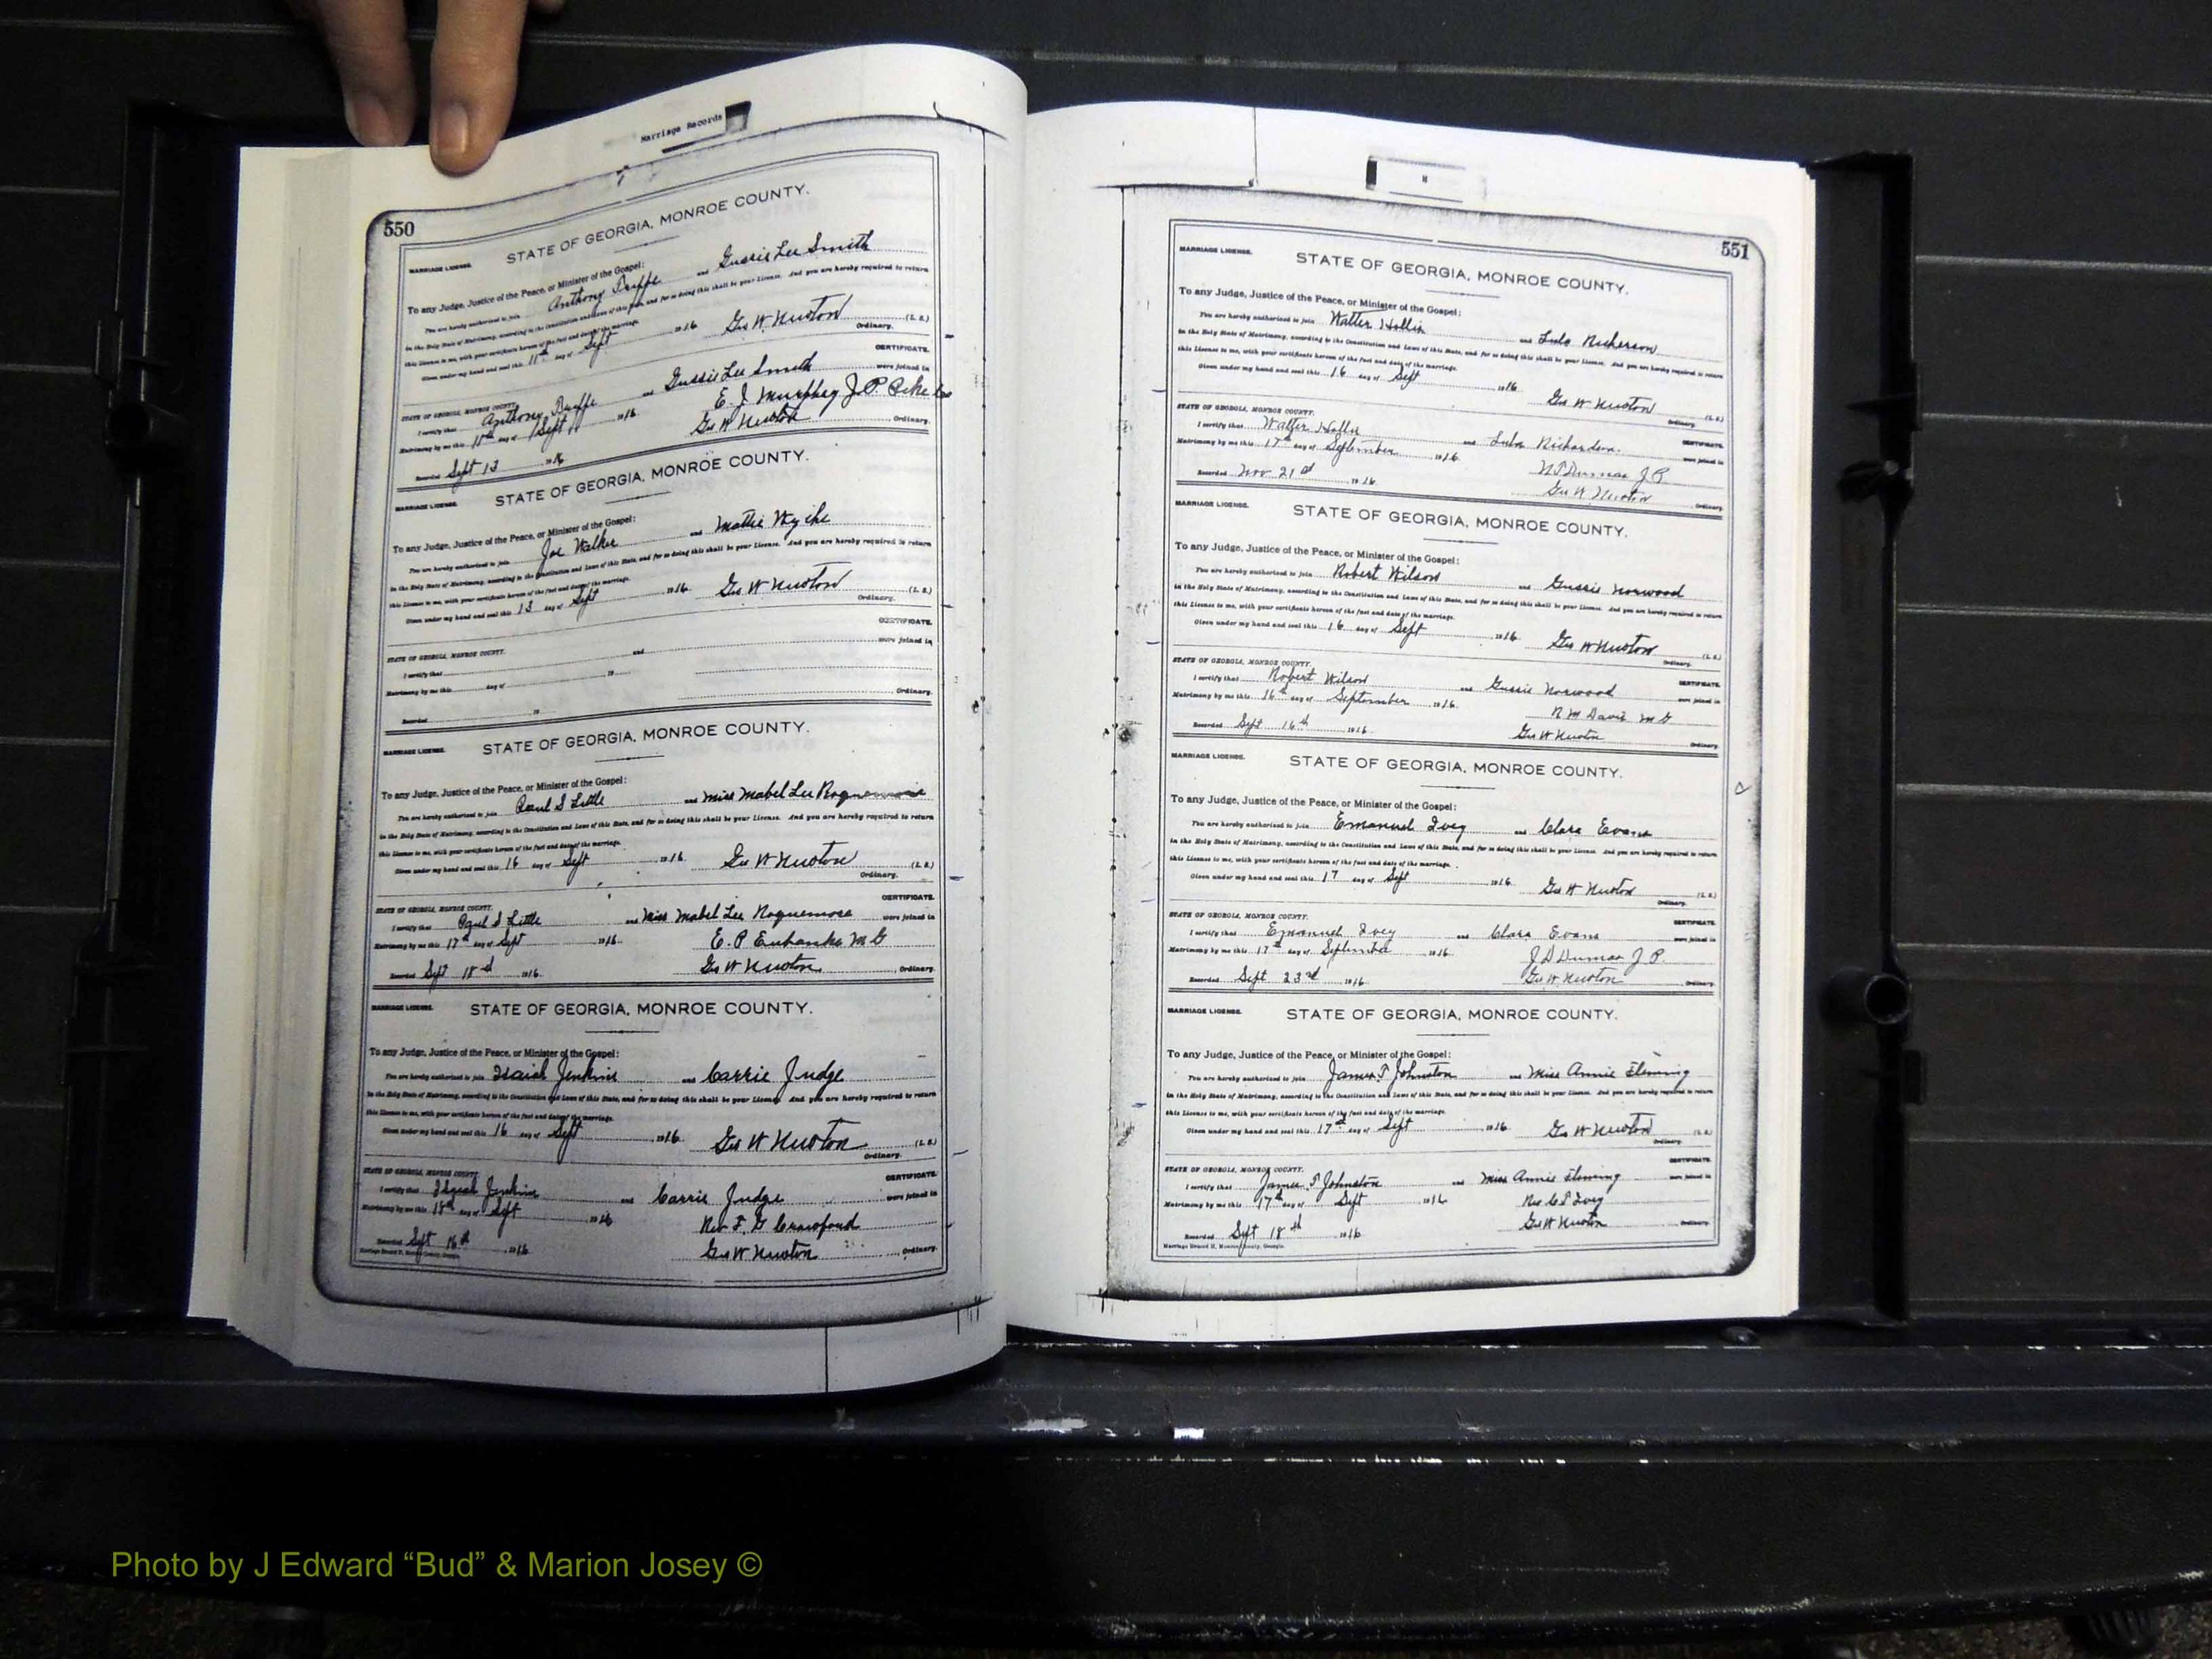 Marriage Records
550
STATE OF GEORGIA, MONROE COUNTY.
MARRIAGE LICENSE.
To any Judge, Justice of the Peace, or Minister of the Gospel:
You are hereby authorized to join Anthony and Gussie Lee Smith
in the Holy State of Matrimony, according to the Constitution and Laws of this State, and for so doing this shall be your License. And you are hereby required to return
this License to me, with your certificate hereon of the fact and date of the marriage.
Given under my hand and seal this 11th day of Sept 1916 Geo W Newton (L. S.)
Ordinary.
CERTIFICATE.
STATE OF GEORGIA, MONROE COUNTY.
I certify that Anthony and Gussie Lee Smith were joined in
Matrimony by me this 11th day of Sept 1916 E. J Murphey J. P.
Recorded Sept 13 1916 Geo W Newton Ordinary.
STATE OF GEORGIA, MONROE COUNTY.
MARRIAGE LICENSE.
To any Judge, Justice of the Peace, or Minister of the Gospel:
You are hereby authorized to join Joe Walker and Mattie Wyche
in the Holy State of Matrimony, according to the Constitution and Laws of this State, and for so doing this shall be your License. And you are hereby required to return
this License to me, with your certificate hereon of the fact and date of the marriage.
Given under my hand and seal this 13 day of Sept 1916 Geo W Newton (L. S.)
Ordinary.
CERTIFICATE.
STATE OF GEORGIA, MONROE COUNTY.
I certify that and were joined in
Matrimony by me this day of 19
Recorded 19 Ordinary.
MARRIAGE LICENSE. STATE OF GEORGIA, MONROE COUNTY.
To any Judge, Justice of the Peace, or Minister of the Gospel:
You are hereby authorized to join Paul S Little and Miss Mabel Lee Roquemore
in the Holy State of Matrimony, according to the Constitution and Laws of this State, and for so doing this shall be your License. And you are hereby required to return
this License to me, with your certificate hereon of the fact and date of the marriage.
Given under my hand and seal this 16 day of Sept 1916 Geo W Newton (L. S.)
Ordinary.
CERTIFICATE.
STATE OF GEORGIA, MONROE COUNTY.
I certify that Paul S Little and Miss Mabel Lee Roquemore were joined in
Matrimony by me this 17th day of Sept 1916 E. P Eubanks M G
Recorded Sept 18 1916 Geo W Newton Ordinary.
MARRIAGE LICENSE. STATE OF GEORGIA, MONROE COUNTY.
To any Judge, Justice of the Peace, or Minister of the Gospel:
You are hereby authorized to join Isaiah Jenkins and Carrie Judge
in the Holy State of Matrimony, according to the Constitution and Laws of this State, and for so doing this shall be your License. And you are hereby required to return
this License to me, with your certificate hereon of the fact and date of the marriage.
Given under my hand and seal this 16 day of Sept 1916 Geo W Newton (L. S.)
Ordinary.
CERTIFICATE.
STATE OF GEORGIA, MONROE COUNTY.
I certify that Isaiah Jenkins and Carrie Judge were joined in
Matrimony by me this day of Sept 1916 Rev F. G Crawford
Recorded Sept 1916 Geo W Newton Ordinary.
Marriage Record H, Monroe County, Georgia.
551
MARRIAGE LICENSE. STATE OF GEORGIA, MONROE COUNTY.
To any Judge, Justice of the Peace, or Minister of the Gospel:
You are hereby authorized to join Walter Hollis and Lula Nickerson
in the Holy State of Matrimony, according to the Constitution and Laws of this State, and for so doing this shall be your License. And you are hereby required to return
this License to me, with your certificate hereon of the fact and date of the marriage.
Given under my hand and seal this 16 day of Sept 1916 Geo W Newton (L. S.)
Ordinary.
STATE OF GEORGIA, MONROE COUNTY. CERTIFICATE.
I certify that Walter Hollis and Lula Richardson were joined in
Matrimony by me this 17th day of September 1916 Dumas J P
Recorded Nov 21 1916 Geo W Newton Ordinary.
MARRIAGE LICENSE. STATE OF GEORGIA, MONROE COUNTY.
To any Judge, Justice of the Peace, or Minister of the Gospel:
You are hereby authorized to join Robert Wilson and Gussie Norwood
in the Holy State of Matrimony, according to the Constitution and Laws of this State, and for so doing this shall be your License. And you are hereby required to return
this License to me, with your certificate hereon of the fact and date of the marriage.
Given under my hand and seal this 16 day of Sept 1916 Geo W Newton (L. S.)
Ordinary.
STATE OF GEORGIA, MONROE COUNTY. CERTIFICATE.
I certify that Robert Wilson and Gussie Norwood were joined in
Matrimony by me this 16th day of September 1916 R M Davis M G
Recorded Sept 16th 1916 Geo W Newton Ordinary.
MARRIAGE LICENSE. STATE OF GEORGIA, MONROE COUNTY.
To any Judge, Justice of the Peace, or Minister of the Gospel:
You are hereby authorized to join Emanuel Ivey and Clara Evans
in the Holy State of Matrimony, according to the Constitution and Laws of this State, and for so doing this shall be your License. And you are hereby required to return
this License to me, with your certificate hereon of the fact and date of the marriage.
Given under my hand and seal this 17 day of Sept 1916 Geo W Newton (L. S.)
Ordinary.
STATE OF GEORGIA, MONROE COUNTY. CERTIFICATE.
I certify that Emanuel Ivey and Clara Evans were joined in
Matrimony by me this 17th day of September 1916 J D Dumas J. P.
Recorded Sept 23rd 1916 Geo W Newton Ordinary.
MARRIAGE LICENSE. STATE OF GEORGIA, MONROE COUNTY.
To any Judge, Justice of the Peace, or Minister of the Gospel:
You are hereby authorized to join James T Johnston and Miss Annie Fleming
in the Holy State of Matrimony, according to the Constitution and Laws of this State, and for so doing this shall be your License. And you are hereby required to return
this License to me, with your certificate hereon of the fact and date of the marriage.
Given under my hand and seal this 17th day of Sept 1916 Geo W Newton (L. S.)
Ordinary.
STATE OF GEORGIA, MONROE COUNTY. CERTIFICATE.
I certify that James T Johnston and Miss Annie Fleming were joined in
Matrimony by me this 17th day of Sept 1916 Rev C T Ivey
Recorded Sept 18th 1916 Geo W Newton Ordinary.
Marriage Record H, Monroe County, Georgia.
Photo by J Edward “Bud” & Marion Josey ©